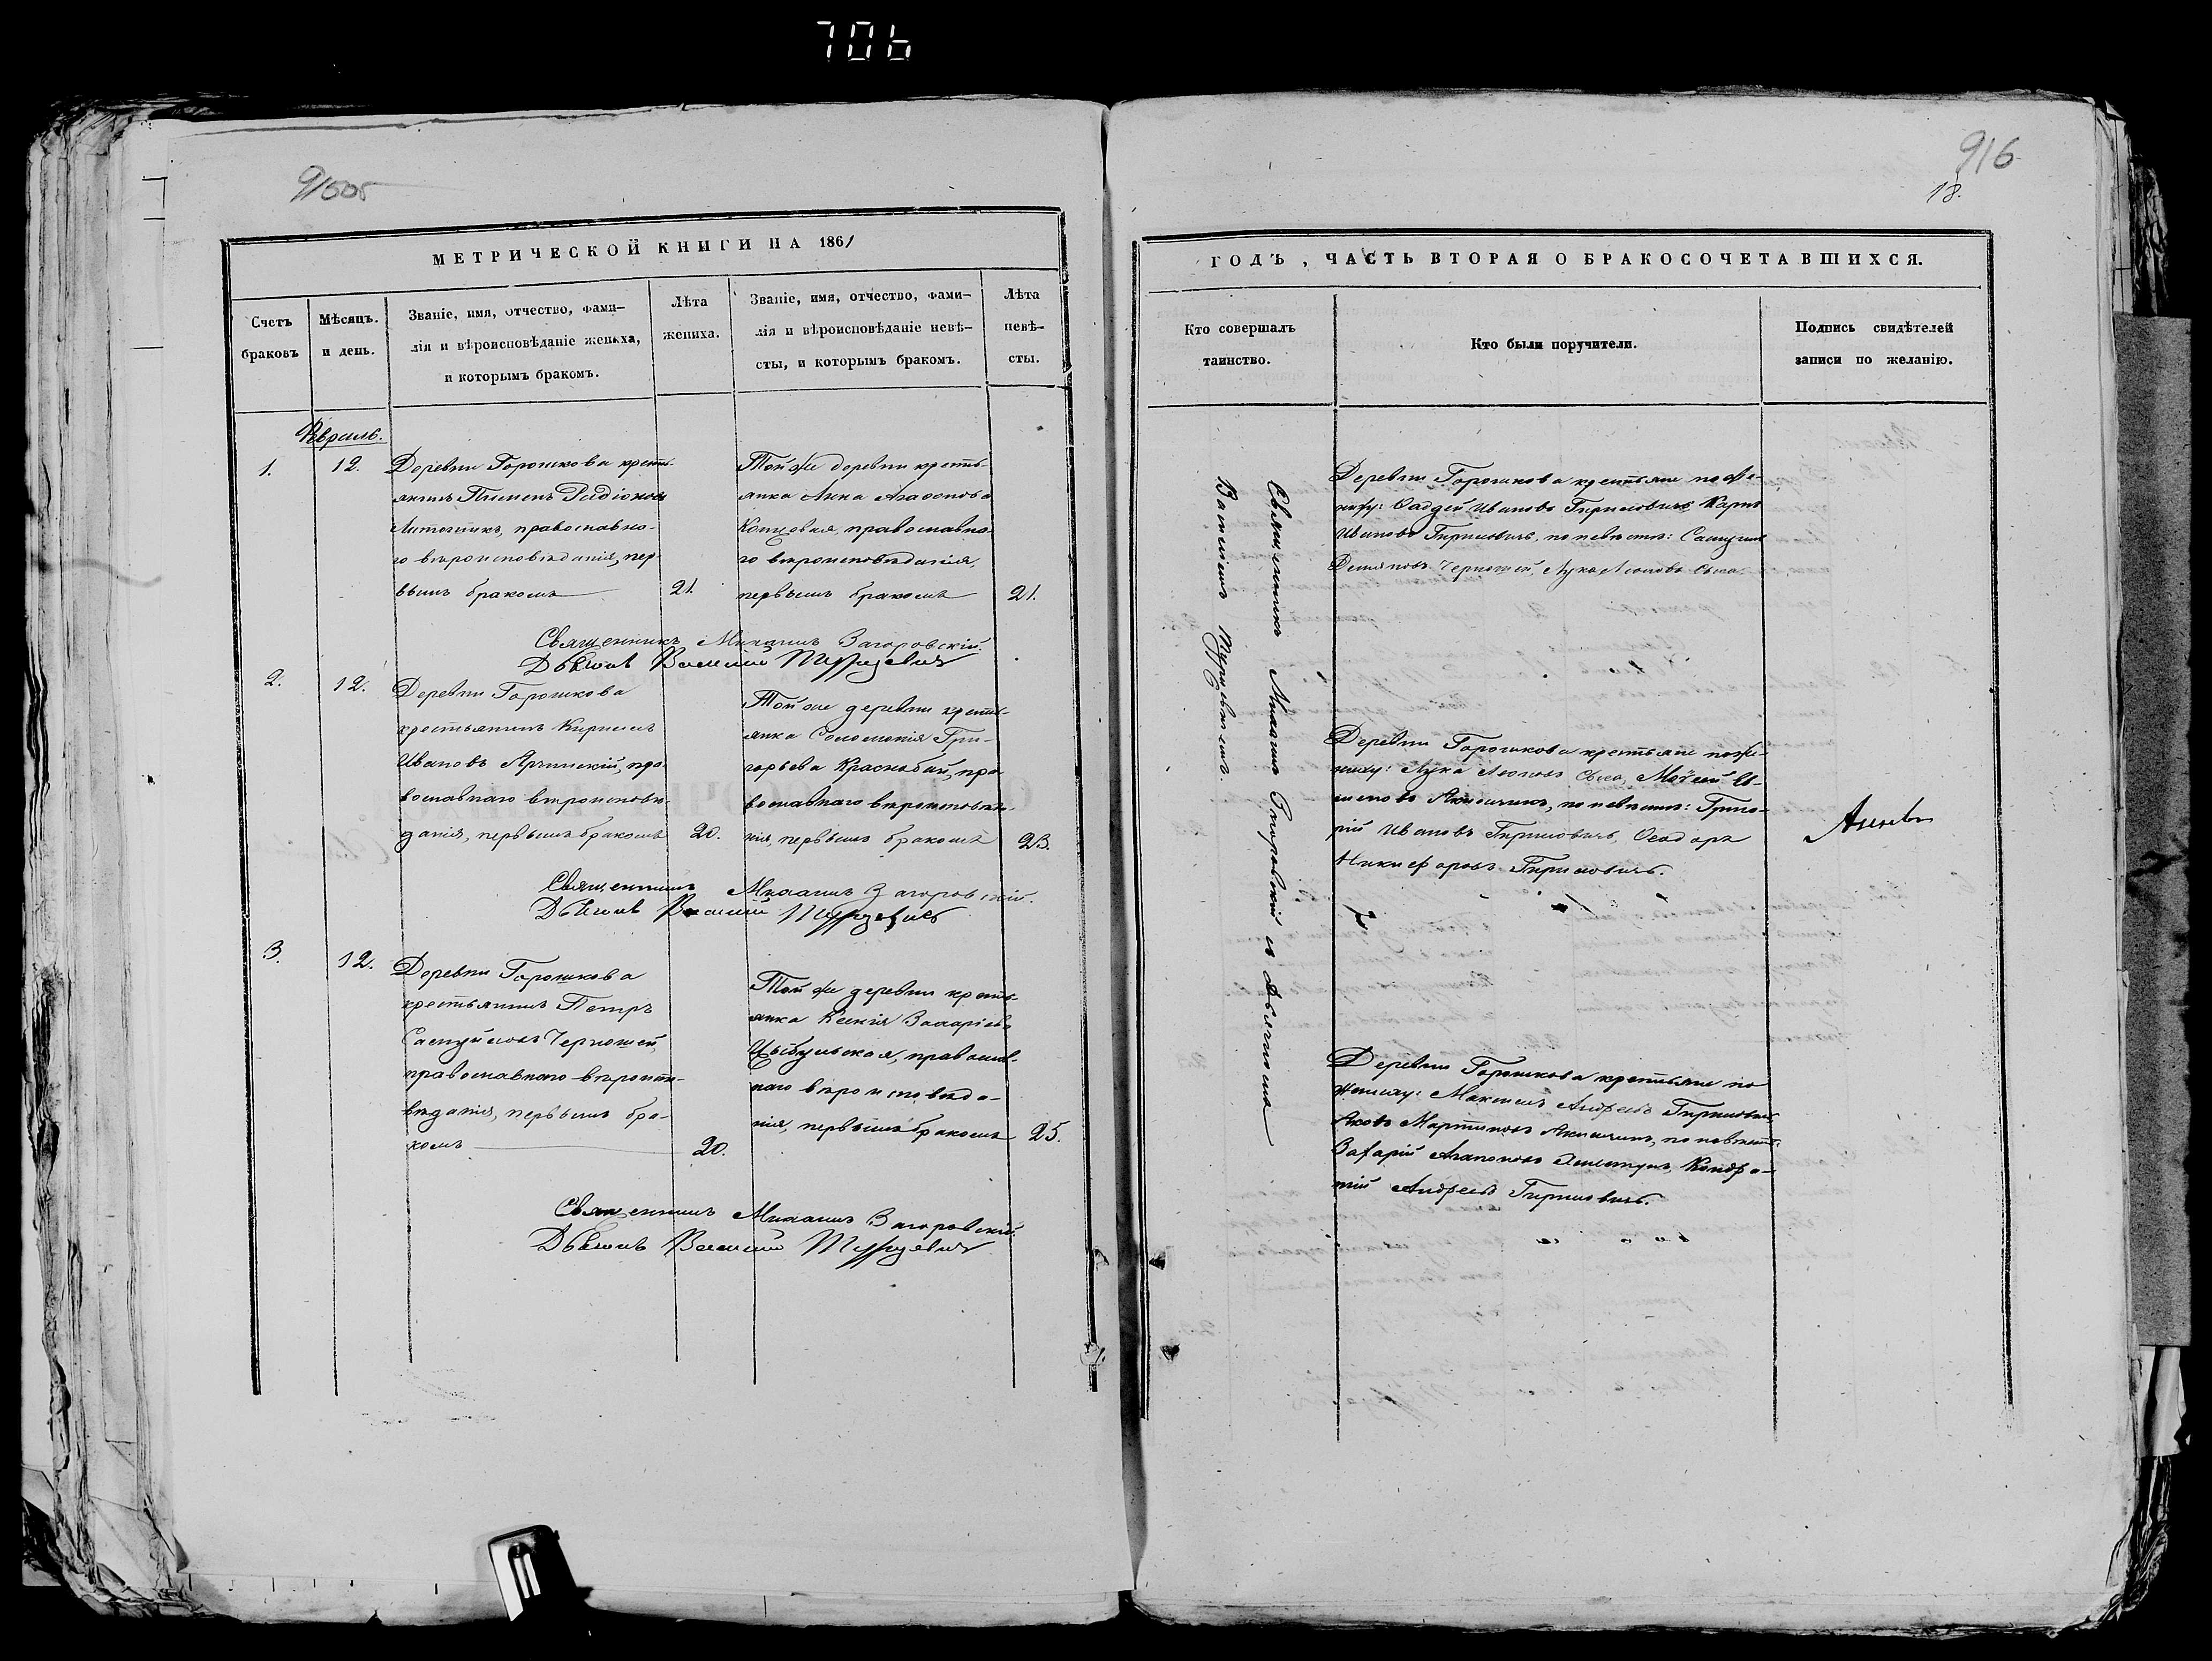 706
916
18.
МЕТРИЧЕСКОЙ КНИГИ НА 1861
Счетъ
браковъ
Мѣсяцъ.
и день.
Званіе, имя, отчество, фами-
лія и вѣроисповѣданіе жениха,
и которымъ бракомъ.
Лѣта
жениха.
Званіе, имя, отчество, фами-
лія и вѣроисповѣданіе невѣ-
сты, и которымъ бракомъ.
Лѣта
невѣ-
сты.
Февраль.
1.
12.
Деревни Горошкова кресть-
янинъ Пименъ Радіоновъ
православно-
го вѣроисповѣданія, пер-
вымъ бракомъ
21.
Той же деревни кресть-
янка Анна Агафонова
православно-
го вѣроисповѣданія,
первымъ бракомъ
21.
Священникъ Михаилъ Загоровскій.
Дьячокъ Василій
2.
12.
Деревни Горошкова
крестьянинъ Кирилъ
Ивановъ пра-
вославнаго вѣроисповѣ-
данія, первымъ бракомъ
20.
Той же деревни кресть-
янка Соломонія Гри-
горьева Краснобай, пра-
вославнаго вѣроисповѣда-
нія, первымъ бракомъ
23.
Священникъ Михаилъ Загоровскій.
Дьячокъ Василій
3.
12.
Деревни Горошкова
крестьянинъ Петръ
Самуйловъ Черношей,
православнаго вѣроиспо-
вѣданія, первымъ бра-
комъ
20.
Той же деревни кресть-
янка Ксенія Захаріева
Цыбульская, православ-
наго вѣроисповѣда-
нія, первымъ бракомъ
25.
Священникъ Михаилъ Загоровскій.
Дьячокъ Василій
ГОДЪ, ЧАСТЬ ВТОРАЯ О БРАКОСОЧЕТАВШИХСЯ.
Кто совершалъ
таинство.
Кто были поручители.
Подпись свидѣтелей
записи по желанію.
Священникъ Михаилъ Загоровскій съ дьячкомъ
Василіемъ
Деревни Горошкова крестьяне по же-
ниху: Фаддей Ивановъ Гириловичъ Карпъ
Ивановъ Гириловичъ, по невѣстѣ: Самуилъ
Демьяновъ Черношей, Лука Леоновъ
Деревни Горошкова крестьяне по же-
ниху: Лука Леоновъ
по невѣстѣ: Григо-
рій Ивановъ Гириловичъ, Феодоръ
Никифоровъ Гириловичъ.
Деревни Горошкова крестьяне по
жениху: Максимъ Андреевъ Гириловичъ,
Яковъ Мартиновъ по невѣстѣ:
Захарій Агапоновъ Кондра-
тій Андреевъ Гириловичъ.